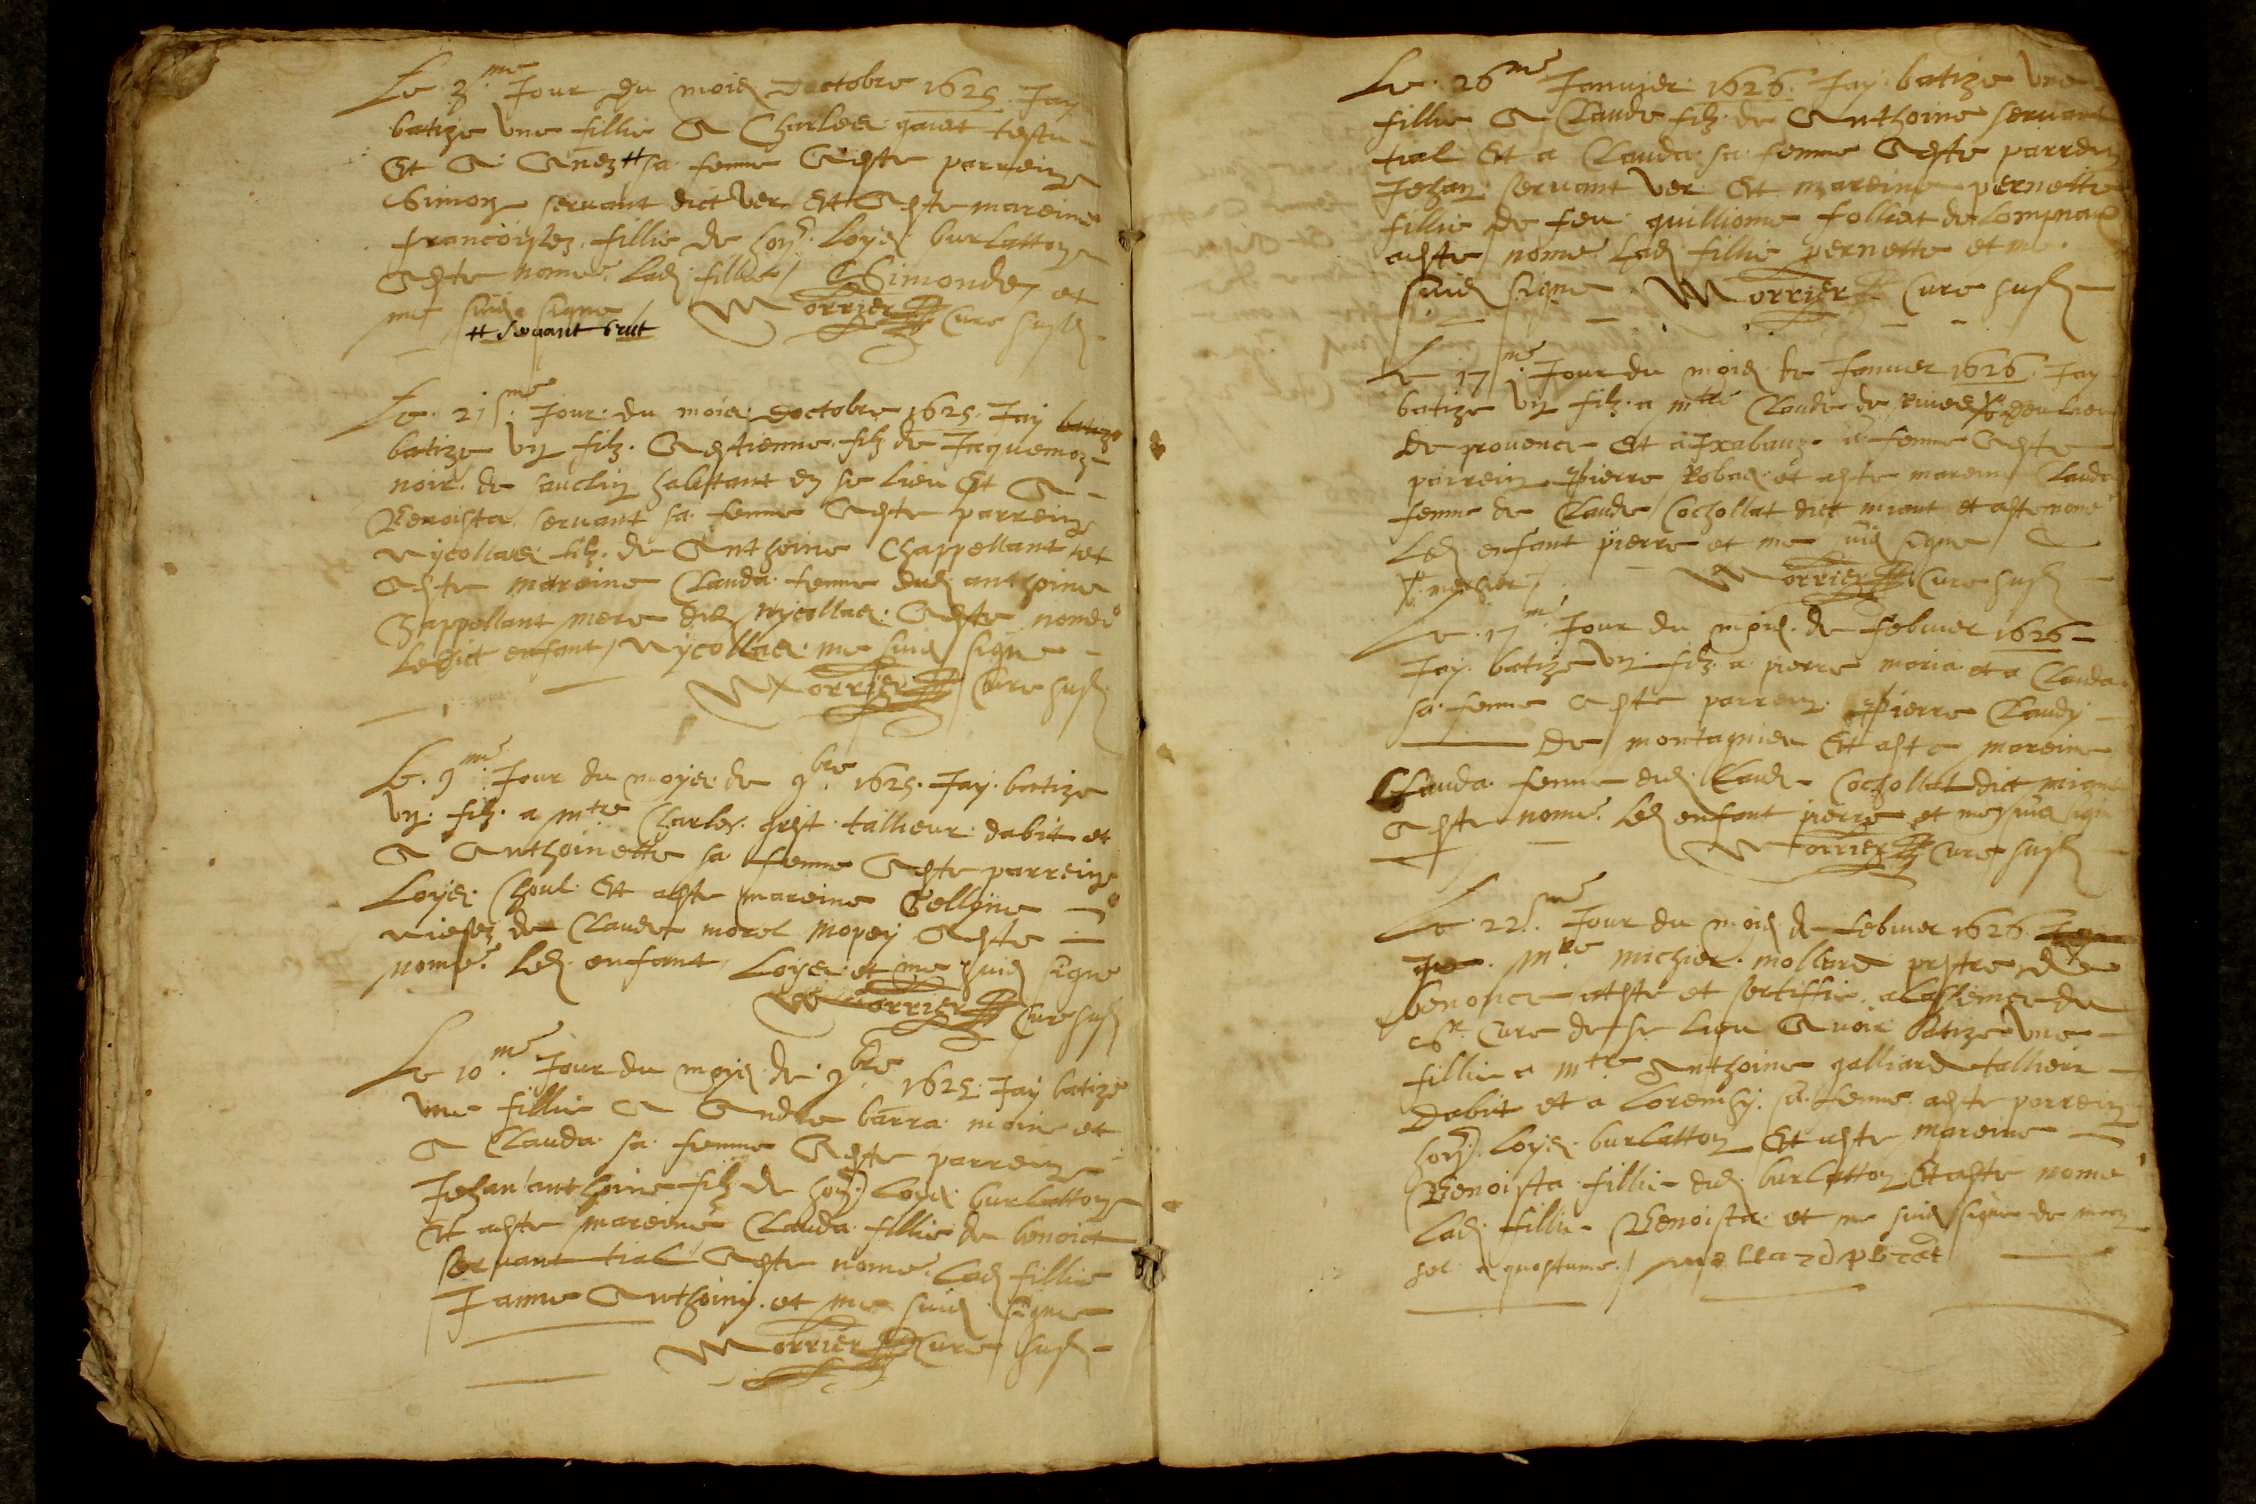 Le 3.me Jour du mois doctobre 1625. Jay
batize une fillie A Charles gauet testu
Et A Anez # sa femme A este parrein
Simon servant dict ver Et A este mareine
francoysez fillie de hon. Loys burlatton
A este nomee Lad. fillie Simonde et
me suis signe Morrier Cure susd.
# servant brut
Le 21s.me Jour du mois doctobre 1625. Jay batize
batize un filz A estienne filz de Jaquemoz
noir de habitant en se lieu Et A
Benoista servant sa femme A este parrein
nycollas filz de Anthoine Chappellant et
A este mareine Clauda femme dud. anthoine
Chappellant mere dud. nycollas A este nomé
Ledict enfant nycollas me suis signe
Morrier Cure susd.
Le 9.me Jour du moys de 9bre 1625. Jay batize
un filz a mtre Charles tallieur dabit et
A Anthoinette sa femme A este parrein
Loys Choul Et a este mareine
de Claude morel mopey A este
nomé Led. enfant Loys et me suis signe
Morrier Cure susd.
Le 10.me Jour du moys de 9bre 1625. Jay batize
une fillie A Andre barra moine et
A Clauda sa femme A este parrein
Jehan anthoine filz de hon. Loys burlatton
et a este mareine Clauda fillie de benoict
servant tial A este nomé Lad. fillie
Janne Anthoine et me suis signe
Morrier Cure susd.
Le 26me Janvier 1626. Jay batize une
fillie A Claude filz de Anthoine servant
tial Et a Clauda sa femme A este parrein
Jehan servant ver Et mareine pernette
fillie de feu guilliome folliet de Lompnas
a este nomé Lad. fillie pernette et me
suis signe Morrier Cure susd.
Le 17.me Jour du mois de Janvier 1626. Jay
batize un filz a mtre Claude de
de provence Et a sa femme A este
parrein Pierre Robas et a este mareine Clauda
femme de Claude Cochollat dict miant et a este nomé
Led. enfant pierre et me suis signe
mercier Morrier Cure susd.
Le 17.me Jour du mois de febvrier 1626
Jay batize un filz a pierre moria et a Clauda
sa femme A este parrein Pierre Claudy
de montagnier Et a este mareine
Clauda femme dud. Claude Cochollat dict miant
A este nomé Led. enfant pierre et me suis signe
Morrier Cure susd.
Le 22s.me Jour du mois de febvrier 1626
Je mre michier mollard prestre de
benonce ateste et sertiffie a labsence du
Sr. Cure de se lieu A voir batize une
fillie a mtre Anthoine galliard tallieur
Dabit et a sa femme a este parrein
hon. Loys burlatton Et a este mareine
Benoista fillie dud. burlatton Et a este nomé
Lad. fillie Benoista et me suis signe de mon
Mollard pbre